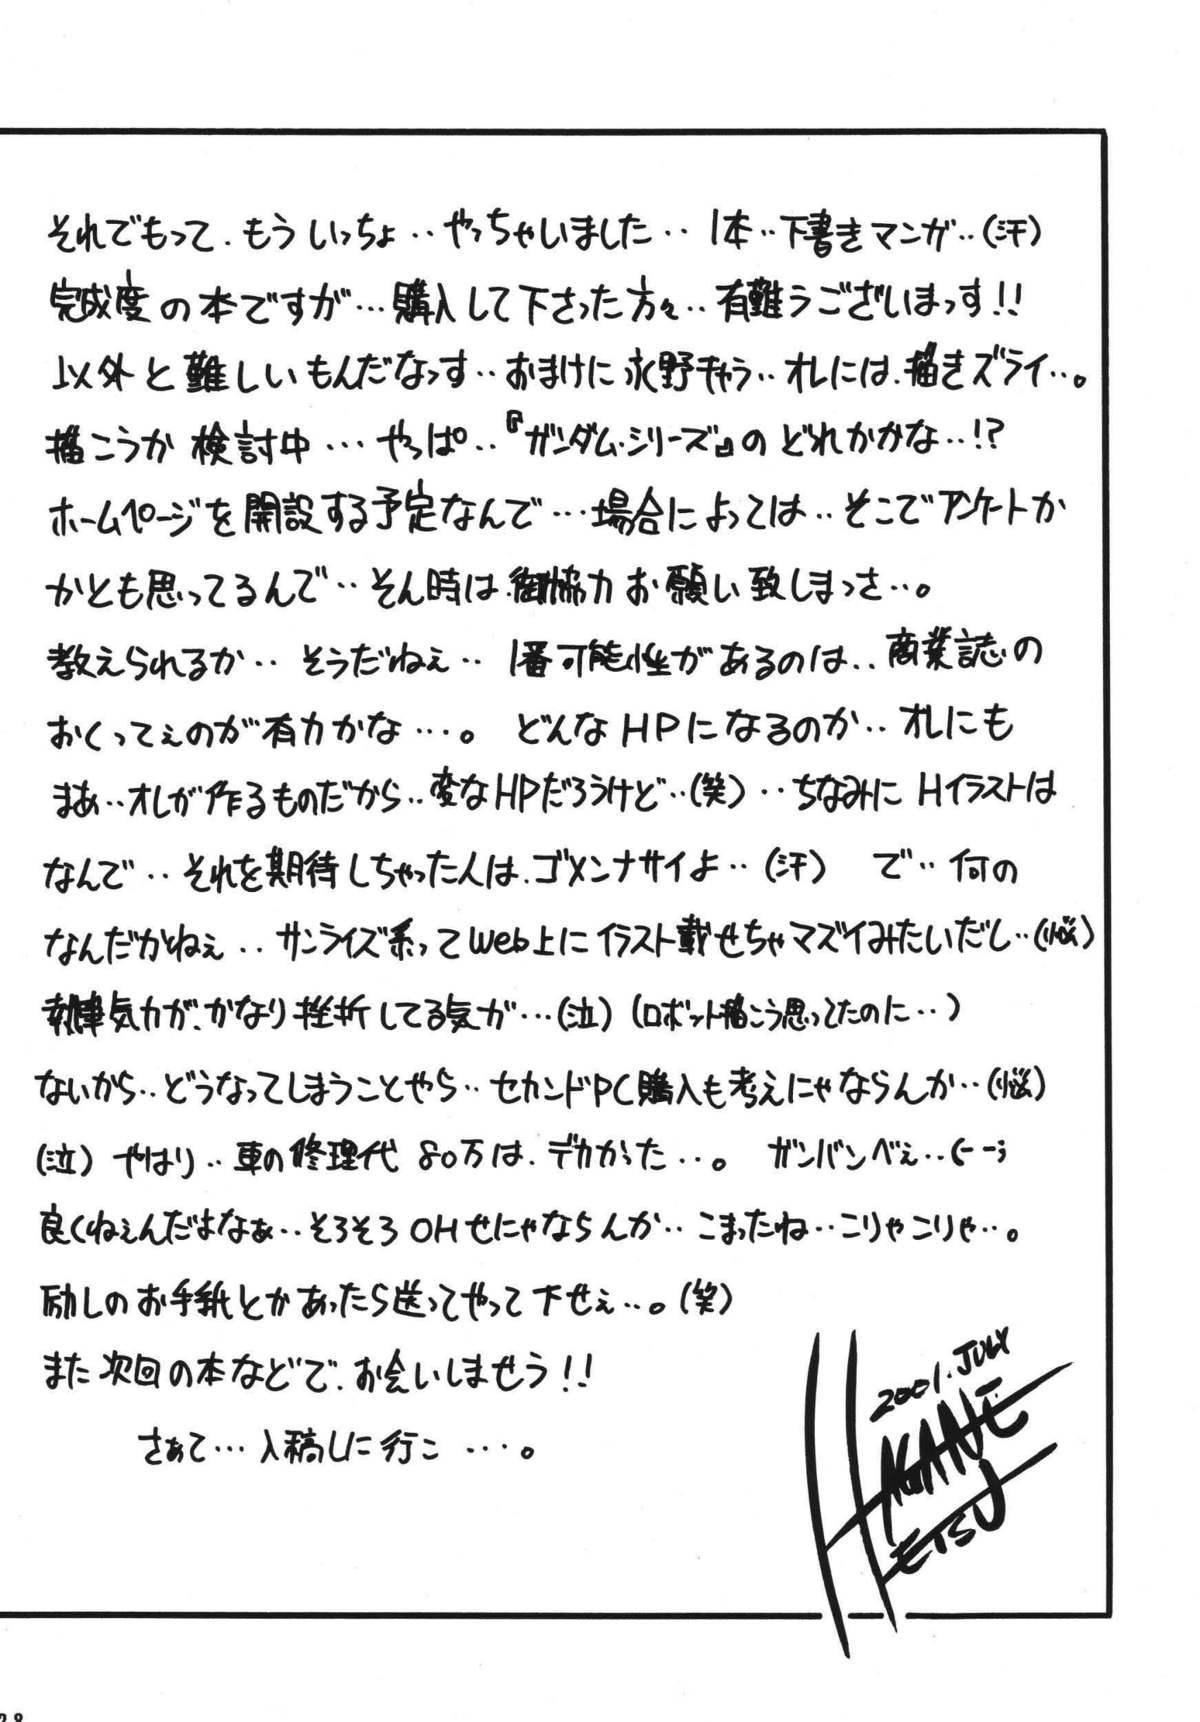 それでもって、もういっちょ‥やっちゃいました‥1本‥下書きマンガ‥(汗)
完成度の本ですが…購入して下さった方々‥有難うございまっす!!
以外と難しいもんだなっす‥おまけに永野キャラ‥オレには、描きズライ‥。
描こうか検討中…やっぱ‥『ガンダム・シリーズ』のどれかかな‥!?
ホームページを開設する予定なんで…場合によっては‥そこでアンケートか
かとも思ってるんで‥そん時は、御協力お願い致しまっさ‥。
教えられるか‥そうだねぇ‥1番可能性があるのは‥商業誌の
おくってぇのが有力かな…。 どんなHPになるのか‥オレにも
まあ‥オレが作るものだから‥変なHPだろうけど‥(笑)‥ちなみにHイラストは
なんで‥それを期待しちゃった人は、ゴメンナサイよ‥(汗) で‥何の
なんだかねぇ‥サンライズ系ってWeb上にイラスト載せちゃマズイみたいだし‥(悩)
気力が、かなり挫折してる気が…(泣)(ロボット描こう思ってたのに‥)
ないから‥どうなってしまうことやら‥セカンドPC購入も考えにゃならんか‥(悩)
(泣)やはり‥車の修理代80万は、デカかった‥。 ガンバンべぇ‥(--;
良くねぇんだよなぁ‥そろそろOHせにゃならんか‥こまったね‥こりゃこりゃ‥。
励しのお手紙とかあったら送ってやって下せぇ‥。(笑)
また次回の本などで、お会いしませう!!
さぁて…入稿しに行こ…。
2001.JULY
HAGANE
TETSU
28